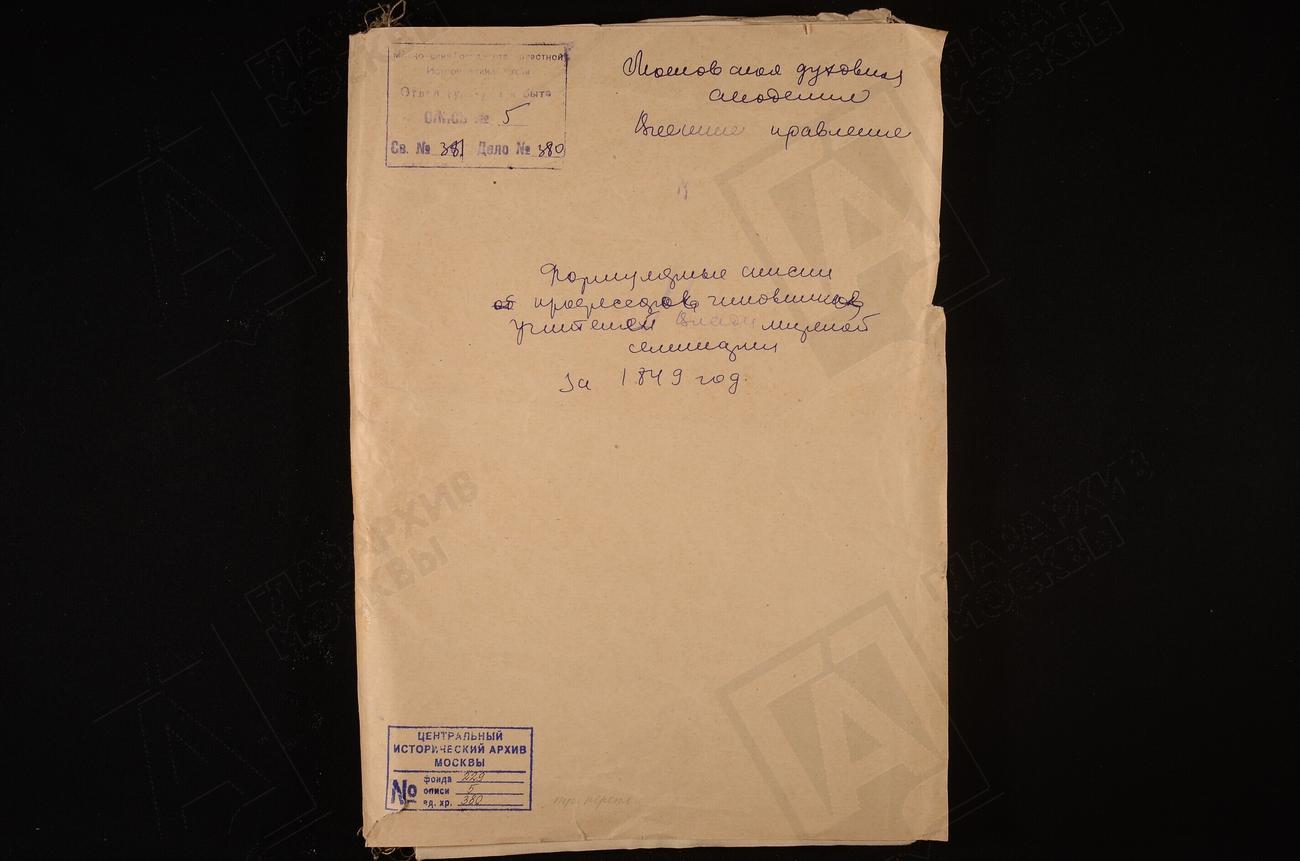 Исторический архив
Отдел культуры и быта
ОПИСЬ № 5
Св. № 381 Дело № 380
Московская духовная
академия
Внешнее правление
Формулярные списки
об профессоров, чиновников
учителей Владимирской
семинарии
за 1849 год.
ЦЕНТРАЛЬНЫЙ
ИСТОРИЧЕСКИЙ АРХИВ
МОСКВЫ
№ фонда 229
описи 5
ед. хр. 380
ГЛАВАРХИВ
МОСКВЫ